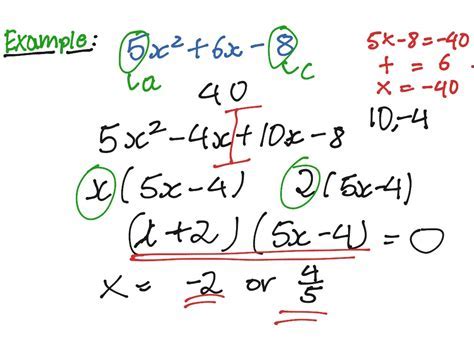 Example: 5x² + 6x - 8
a c
5x-8 = -40
+ = 6
x = -40
40
10, -4
5x² - 4x + 10x - 8
x(5x-4) 2(5x-4)
(x+2)(5x-4) = 0
x = -2 or 4/5